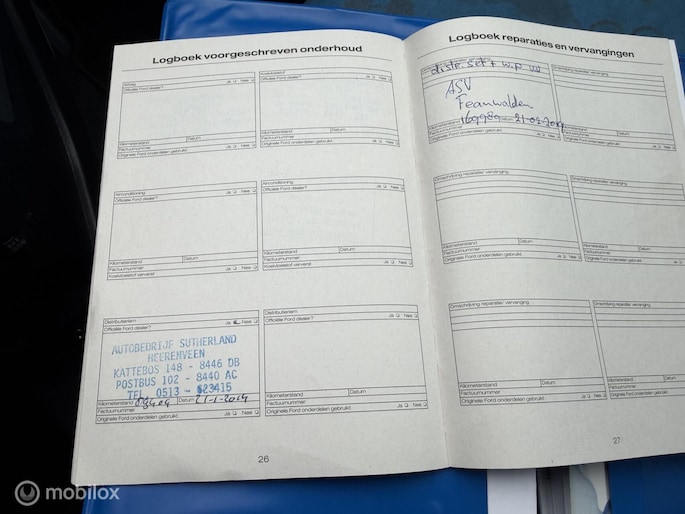 Logboek voorgeschreven onderhoud
Koelvloeistof
Officiële Ford dealer? Ja Nee
Kilometerstand Datum
Factuurnummer
Originele Ford onderdelen gebruikt Ja Nee
Kilometerstand Datum
Factuurnummer
Originele Ford onderdelen gebruikt Ja Nee
Airconditioning
Officiële Ford dealer? Ja Nee
Kilometerstand Datum
Factuurnummer
Koelvloeistof ververst Ja Nee
Airconditioning
Officiële Ford dealer? Ja Nee
Kilometerstand Datum
Factuurnummer
Koelvloeistof ververst Ja Nee
Distributieriem
Officiële Ford dealer? Ja Nee
AUTOBEDRIJF SUTHERLAND
HEERENVEEN
KATTEBOS 148 - 8446 DB
POSTBUS 102 - 8440 AC
TEL. 0513 - 623415
Kilometerstand Datum 21-1-2014
Factuurnummer
Originele Ford onderdelen gebruikt Ja Nee
Distributieriem
Officiële Ford dealer? Ja Nee
Kilometerstand Datum
Factuurnummer
Originele Ford onderdelen gebruikt Ja Nee
26
Logboek reparaties en vervangingen
distr. set + w.p.
ASV
Feanwalden
Factuurnummer
Originele Ford onderdelen gebruikt Ja Nee
Omschrijving reparatie/ vervanging
Kilometerstand Datum
Factuurnummer
Originele Ford onderdelen gebruikt Ja Nee
Omschrijving reparatie/ vervanging
Kilometerstand Datum
Factuurnummer
Originele Ford onderdelen gebruikt Ja Nee
Omschrijving reparatie/ vervanging
Kilometerstand Datum
Factuurnummer
Originele Ford onderdelen gebruikt Ja Nee
Omschrijving reparatie/ vervanging
Kilometerstand Datum
Factuurnummer
Originele Ford onderdelen gebruikt Ja Nee
Omschrijving reparatie/ vervanging
Kilometerstand Datum
Factuurnummer
Originele Ford onderdelen gebruikt Ja Nee
27
mobilox